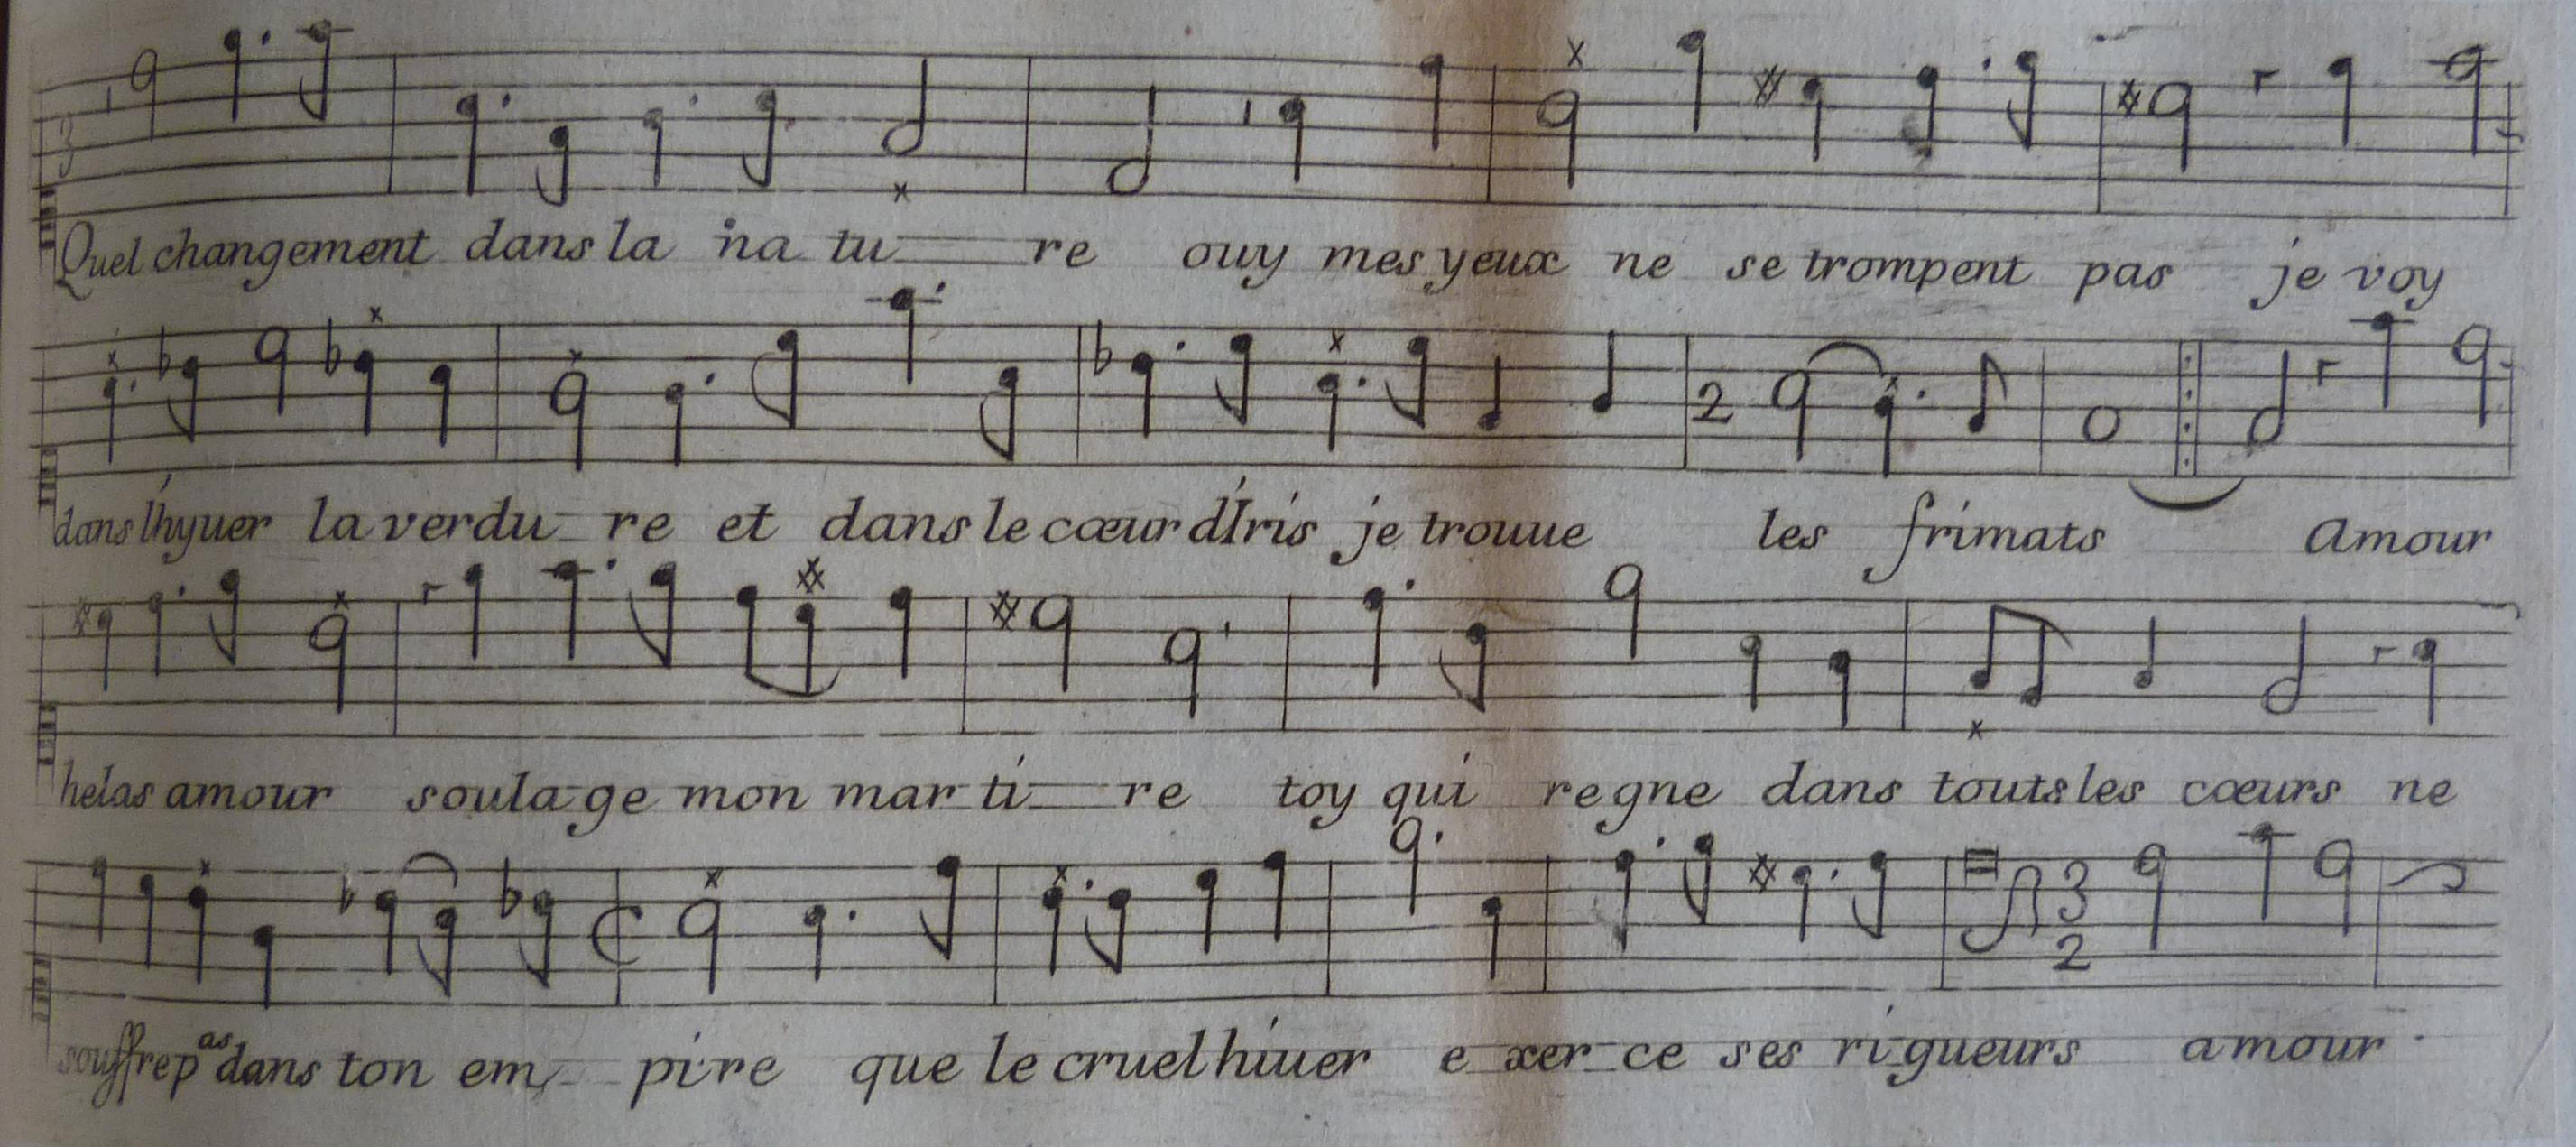 Quel changement dans la na tu re ouy mes yeux ne se trompent pas je voy
dans l'hyuer la verdu re et dans le cœur d'Iris je trouue les frimats Amour
helas amour soula ge mon mar ti re toy qui re gne dans touts les cœurs ne
souffre pas dans ton em pi re que le cruel hiuer e xer ce ses ri gueurs amour